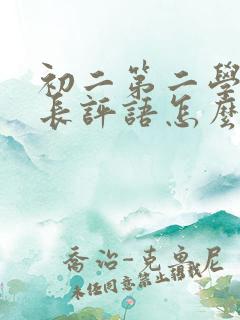 初二第二學
長評語怎麼
喬治-克魯尼
未经同意禁止转载